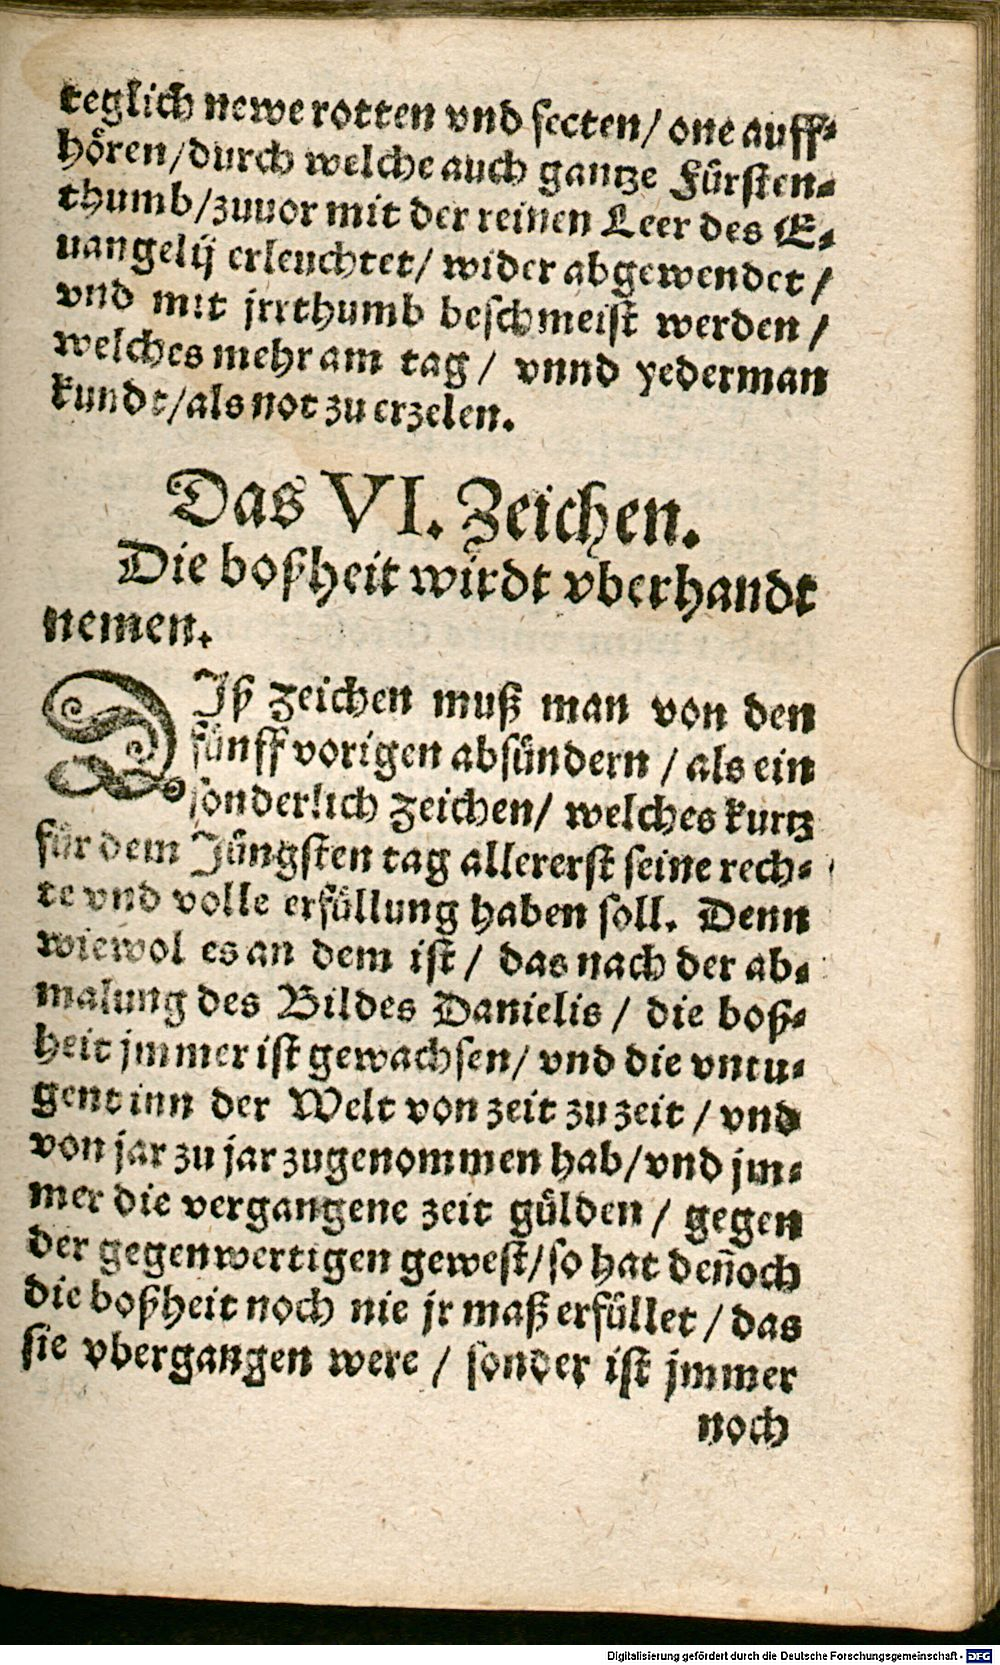 teglich newe rotten vnd secten/ one auff⸗
hören/durch welche auch gantze Fürsten⸗
thumb/zuuor mit der reinen Leer des E⸗
uangelij erleuchtet/ wider abgewendet /
vnd mit jrrthumb beschmeist werden /
welches mehr am tag / vnnd yederman
kundt/als not zu erzelen.
Das VI. Zeichen.
Die boßheit wirdt vberhandt
nemen.
DJß zeichen muß man von den
fünff vorigen absündern / als ein
sonderlich zeichen/ welches kurtz
für dem Jüngsten tag allererst seine rech⸗
te vnd volle erfüllung haben soll. Denn
wiewol es an dem ist / das nach der ab⸗
malung des Bildes Danielis / die boß⸗
heit jmmer ist gewachsen/ vnd die vntu⸗
gent inn der Welt von zeit zu zeit / vnd
von jar zu jar zugenommen hab/vnd jm⸗
mer die vergangene zeit gülden / gegen
der gegenwertigen gewest/so hat deñoch
die boßheit noch nie jr maß erfüllet / das
sie vbergangen were / sonder ist jmmer
noch
Digitalisierung gefördert durch die Deutsche Forschungsgemeinschaft - DFG